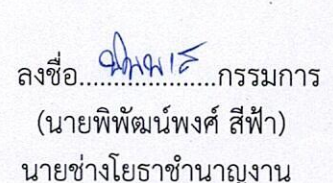 ลงชื่อ.....................กรรมการ
(นายพิพัฒน์พงศ์ สีฟ้า)
นายช่างโยธาชำนาญงาน